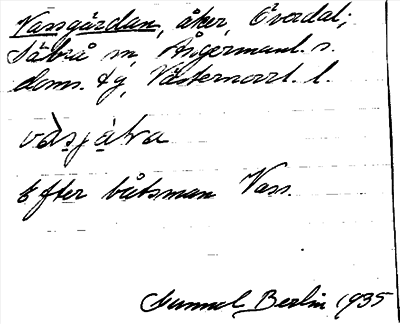 Vassgårdan, åker, Överdal;
Säbrå sn, Ångermanl. s.
doms. tg, Västernorrl. l.
vàsjạ̊ḷa
Efter båtsman Vass.
Gunnel Berlin 1935